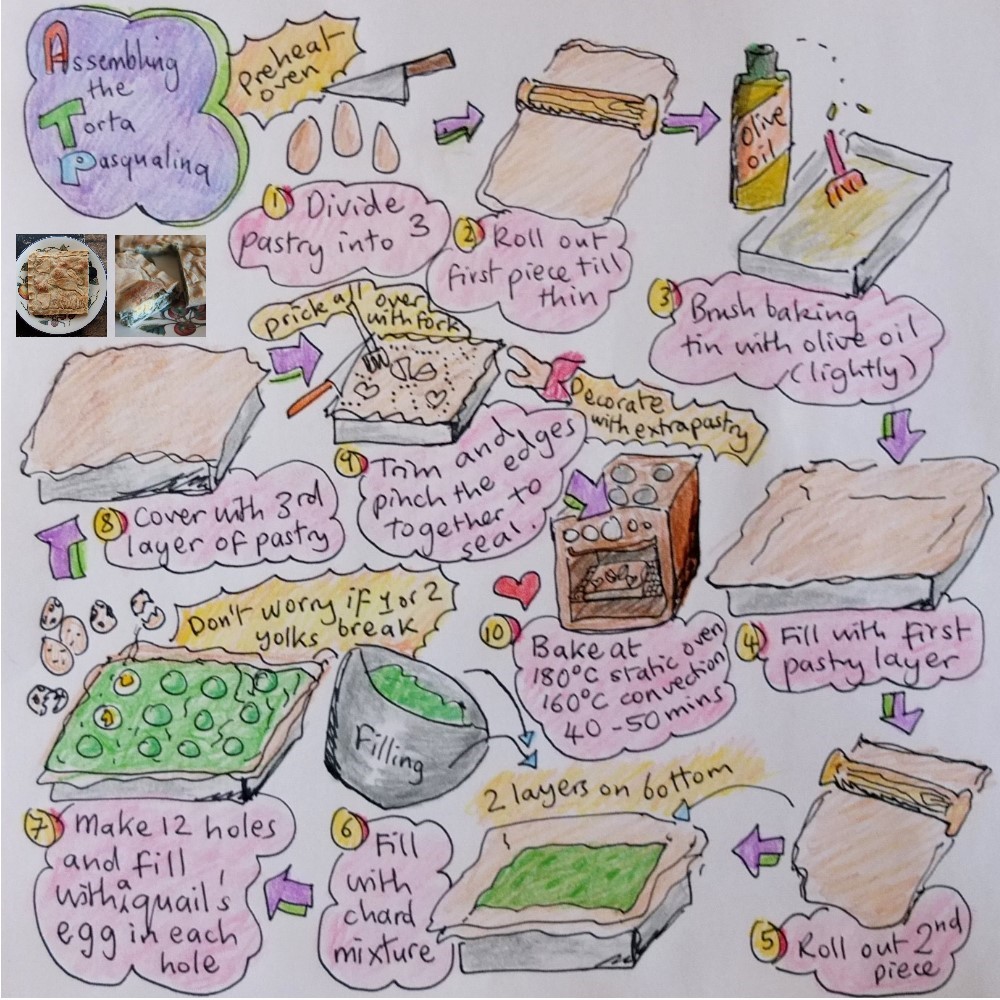 Assembling
the
Torta
Pasqualina
Preheat
oven
1 Divide
pastry into 3
2 Roll out
first piece till
thin
Olive
oil
3 Brush baking
tin with olive oil
(lightly)
4 Fill with first
pastry layer
5 Roll out 2nd
piece
2 layers on bottom
6 Fill
with
chard
mixture
Filling
7 Make 12 holes
and fill
with a quail's
egg in each
hole
Don't worry if 1 or 2
yolks break
8 Cover with 3rd
layer of pastry
prick all over
with fork
9 Trim and
pinch the edges
together to
seal.
Decorate
with extra pastry
10 Bake at
180°C static oven
160°C convection
40-50 mins